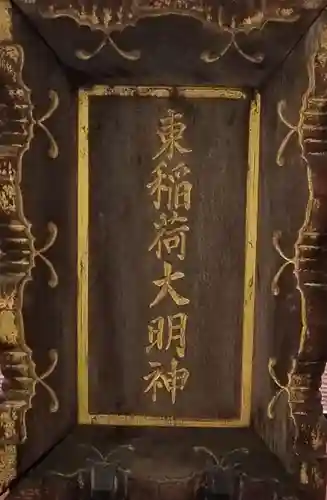 東稲荷大明神